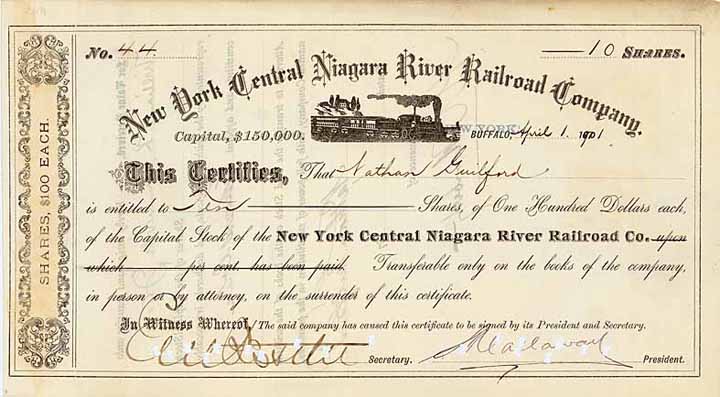 No. 44
10 SHARES.
New York Central Niagara River Railroad Company.
Capital, $150,000.
W YORK
BUFFALO, April 1 1901
SHARES, $100 EACH.
This Certifies, That Nathan Guilford
is entitled to Ten Shares, of One Hundred Dollars each,
of the Capital Stock of the New York Central Niagara River Railroad Co. upon
which per cent. has been paid. Transferable only on the books of the company,
in person or by attorney, on the surrender of this certificate.
In Witness Whereof, The said company has caused this certificate to be signed by its President and Secretary.
Secretary.
President.